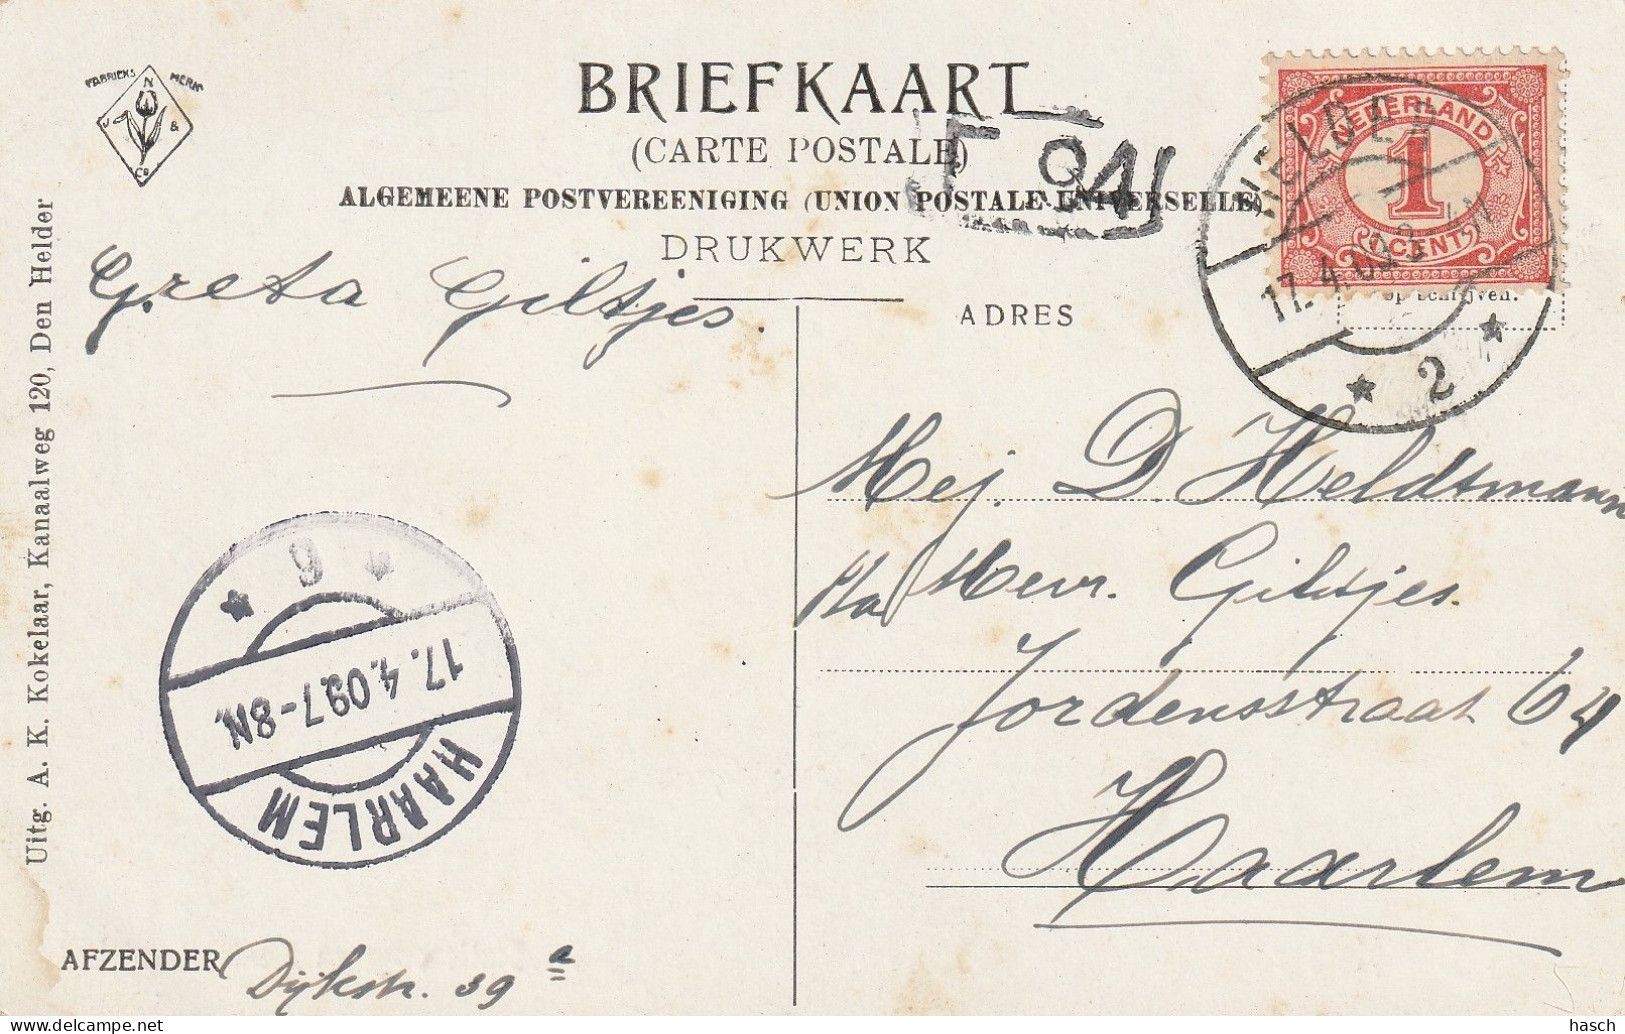 FABRIEKS MERK
N
J &
Co
BRIEFKAART
(CARTE POSTALE)
ALGEMEENE POSTVEREENIGING (UNION POSTALE UNIVERSELLE)
DRUKWERK
NEDERLAND
1
1 CENT
HELDER
17.4.09
2
op schrijven.
Greta Giltjes.
ADRES
Mej. D. Heldtmann
p/a Mevr. Giltjes.
Jordensstraat 64
Haarlem
9
17.4.09.7-8N.
HAARLEM
Uitg. A. K. Kokelaar, Kanaalweg 120, Den Helder
AFZENDER Dijkstr. 39 a
hasch
delcampe.net